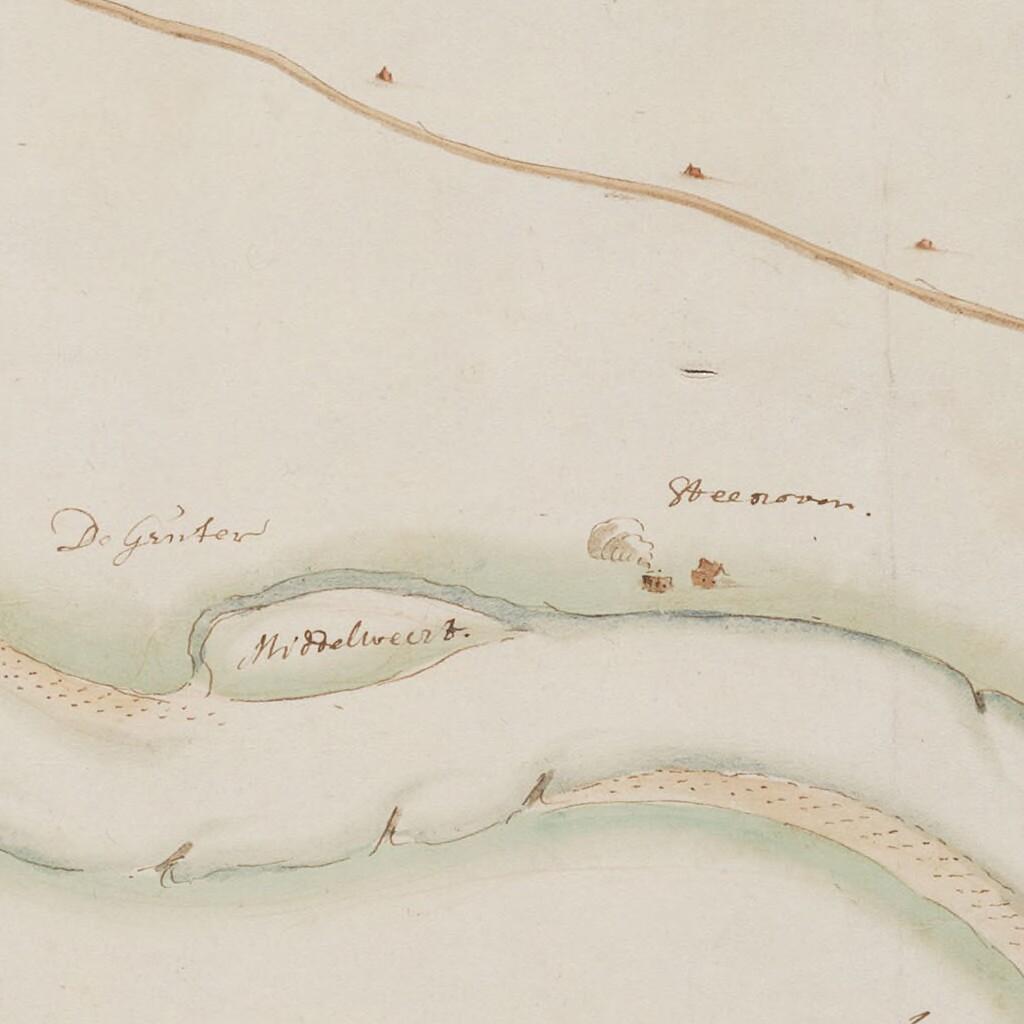 Steenoven.
De Gruter
Middelweert.